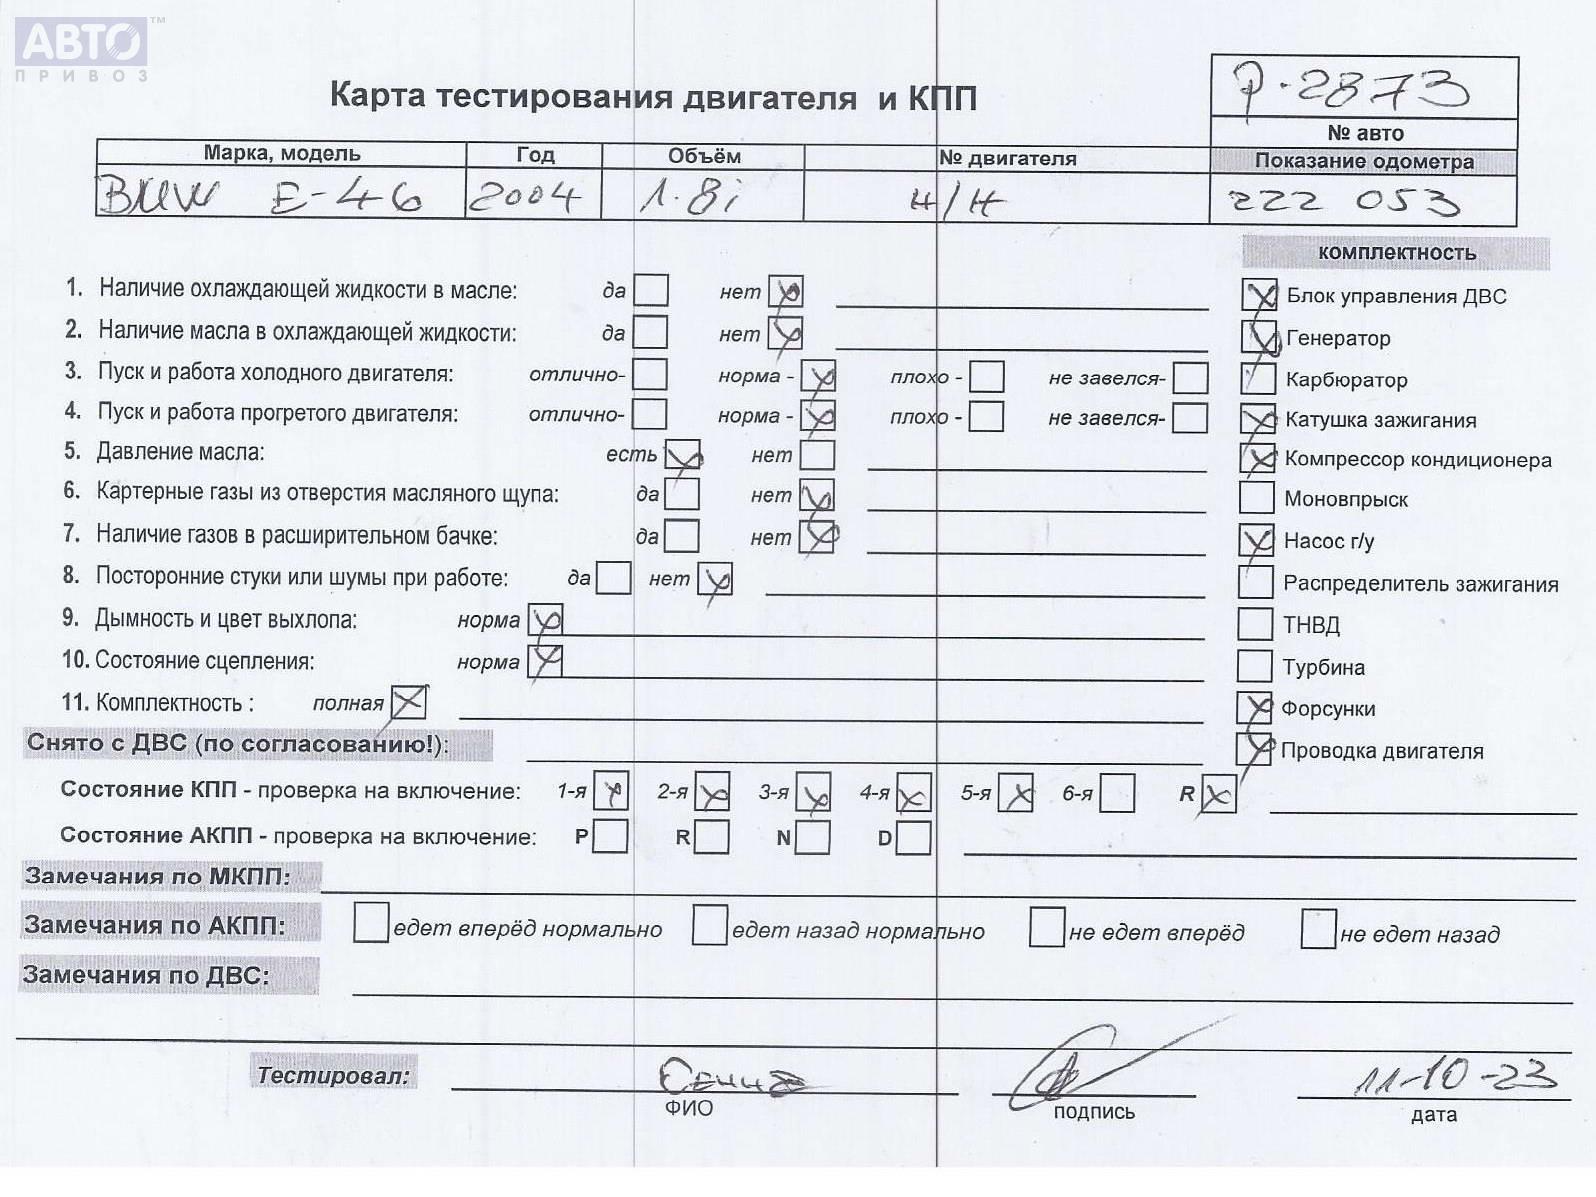 АВТО™
ПРИВОЗ
Карта тестирования двигателя и КПП
Р-2873
№ авто
Марка, модель Год Объём № двигателя Показание одометра
BMW E-46 2004 1.8i н/н 222 053
комплектность
1. Наличие охлаждающей жидкости в масле: да нет
Блок управления ДВС
2. Наличие масла в охлаждающей жидкости: да нет
Генератор
3. Пуск и работа холодного двигателя: отлично- норма - плохо - не завелся-
Карбюратор
4. Пуск и работа прогретого двигателя: отлично- норма - плохо - не завелся-
Катушка зажигания
5. Давление масла: есть нет
Компрессор кондиционера
6. Картерные газы из отверстия масляного щупа: да нет
Моновпрыск
7. Наличие газов в расширительном бачке: да нет
Насос г/у
8. Посторонние стуки или шумы при работе: да нет
Распределитель зажигания
9. Дымность и цвет выхлопа: норма
ТНВД
10. Состояние сцепления: норма
Турбина
11. Комплектность : полная
Форсунки
Снято с ДВС (по согласованию!):
Проводка двигателя
Состояние КПП - проверка на включение: 1-я 2-я 3-я 4-я 5-я 6-я R
Состояние АКПП - проверка на включение: P R N D
Замечания по МКПП:
Замечания по АКПП: едет вперёд нормально едет назад нормально не едет вперёд не едет назад
Замечания по ДВС:
Тестировал: 11-10-23
ФИО подпись дата